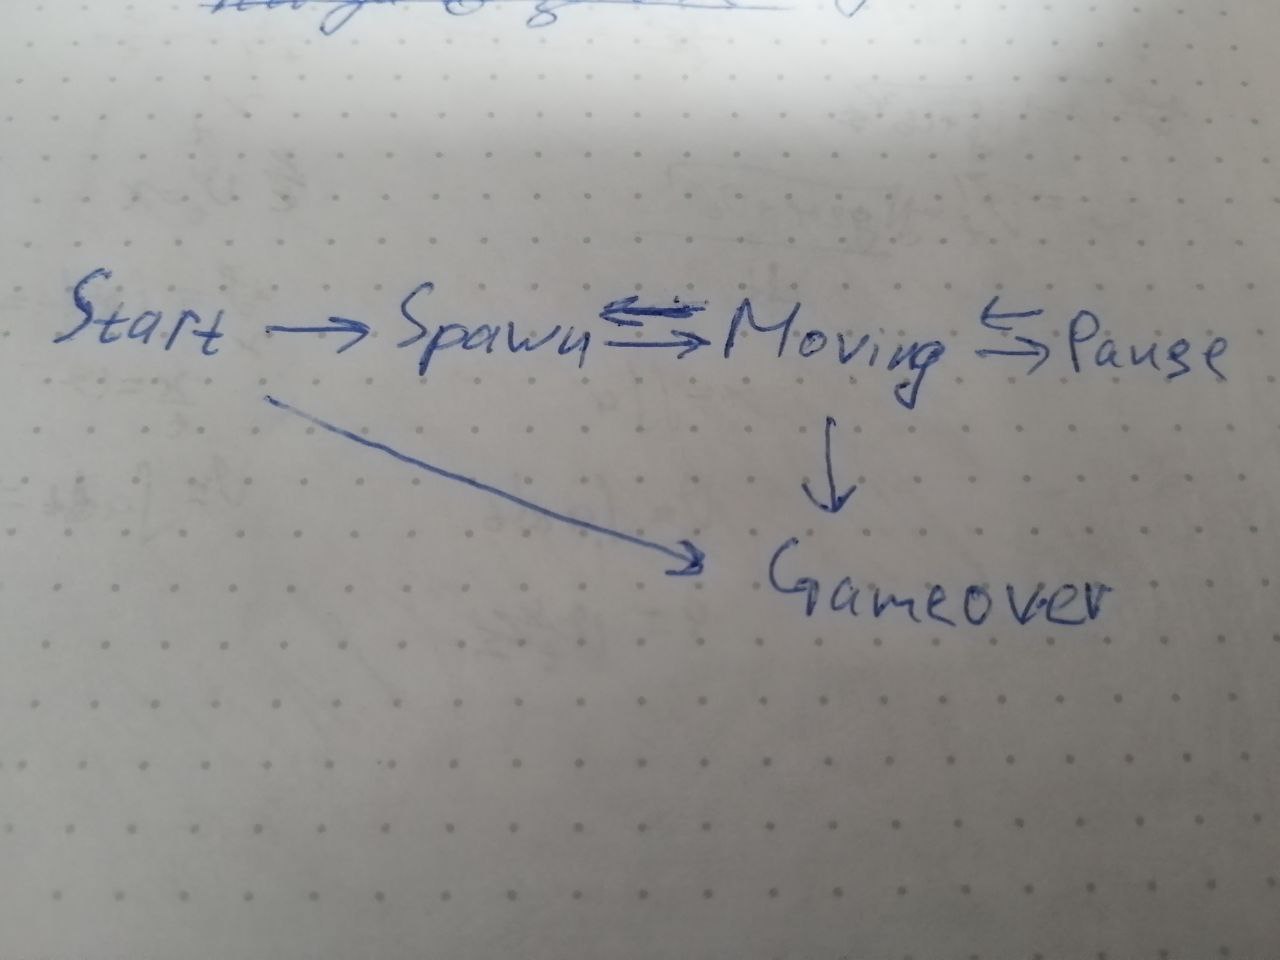 Start → Spawn ⇄ Moving ⇄ Pause
Gameover